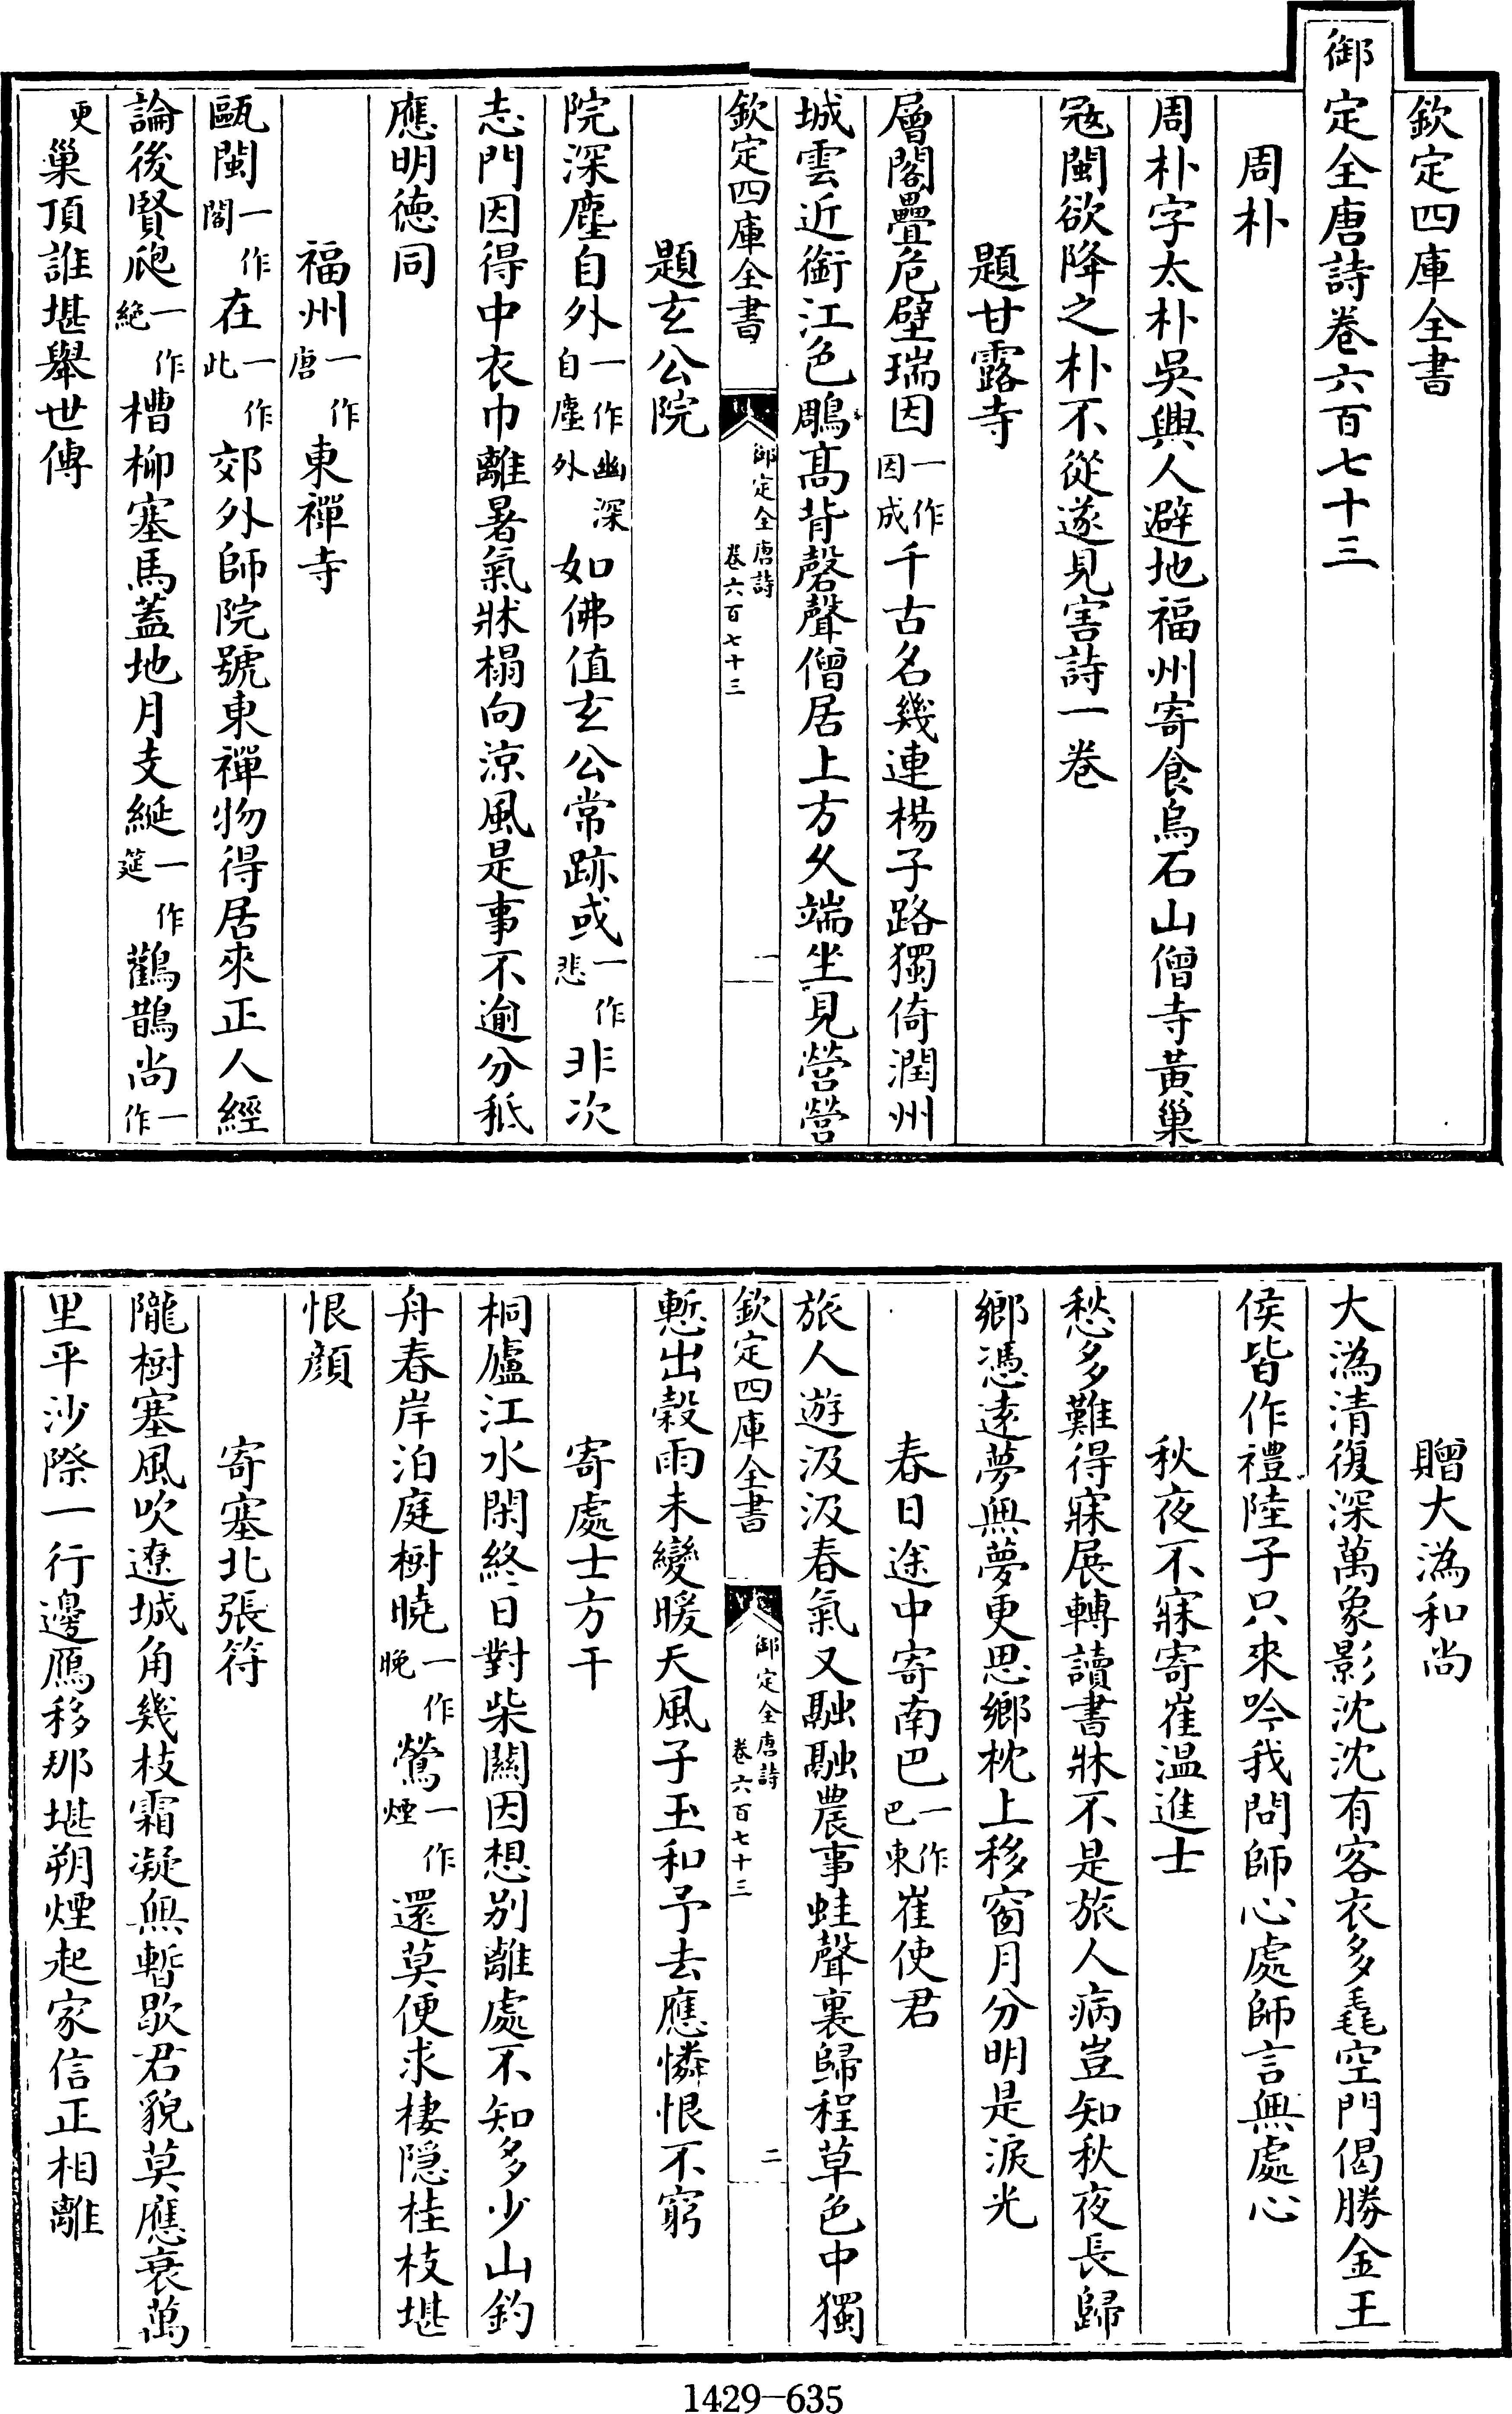 欽定四庫全書
御定全唐詩卷六百七十三
周朴
周朴字太朴吳興人避地福州寄食烏石山僧寺黃巢
冦閩欲降之朴不從遂見害詩一卷
題甘露寺
層閣疊危壁瑞因一作因成千古名幾連楊子路獨倚潤州
城雲近銜江色鵰髙背磬聲僧居上方乆端坐見營營
欽定四庫全書 御定全唐詩卷六百七十三 一
題玄公院
院深塵自外一作幽深自塵外如佛值玄公常跡或一作悲非次
志門因得中衣巾離暑氣牀榻向涼風是事不逾分秪
應明德同
福州一作唐東禪寺
甌閩一作閣在一作此郊外師院號東禪物得居來正人經
論後賢爮一作絶槽柳塞馬蓋地月支綖一作筵鸛鵲尚一作
更巢頂誰堪舉世傳
贈大溈和尚
大溈清復深萬象影沈沈有客衣多毳空門偈勝金王
侯皆作禮陸子只來吟我問師心處師言無處心
秋夜不寐寄崔温進士
愁多難得寐展轉讀書牀不是旅人病豈知秋夜長歸
鄉憑逺夢無夢更思鄉枕上移窗月分明是淚光
春日途中寄南巴一作巴東崔使君
旅人遊汲汲春氣又融融農事蛙聲裏歸程草色中獨
欽定四庫全書 御定全唐詩卷六百七十三 二
慙出榖雨未變暖天風子玉和予去應憐恨不窮
寄處士方干
桐廬江水閑終日對柴關因想别離處不知多少山釣
舟春岸泊庭樹曉一作晚鶯一作煙還莫便求棲隠桂枝堪
恨顔
寄塞北張符
隴樹塞風吹遼城角幾枝霜凝無暫歇君貌莫應衰萬
里平沙際一行邊鴈移那堪朔煙起家信正相離
1429-635